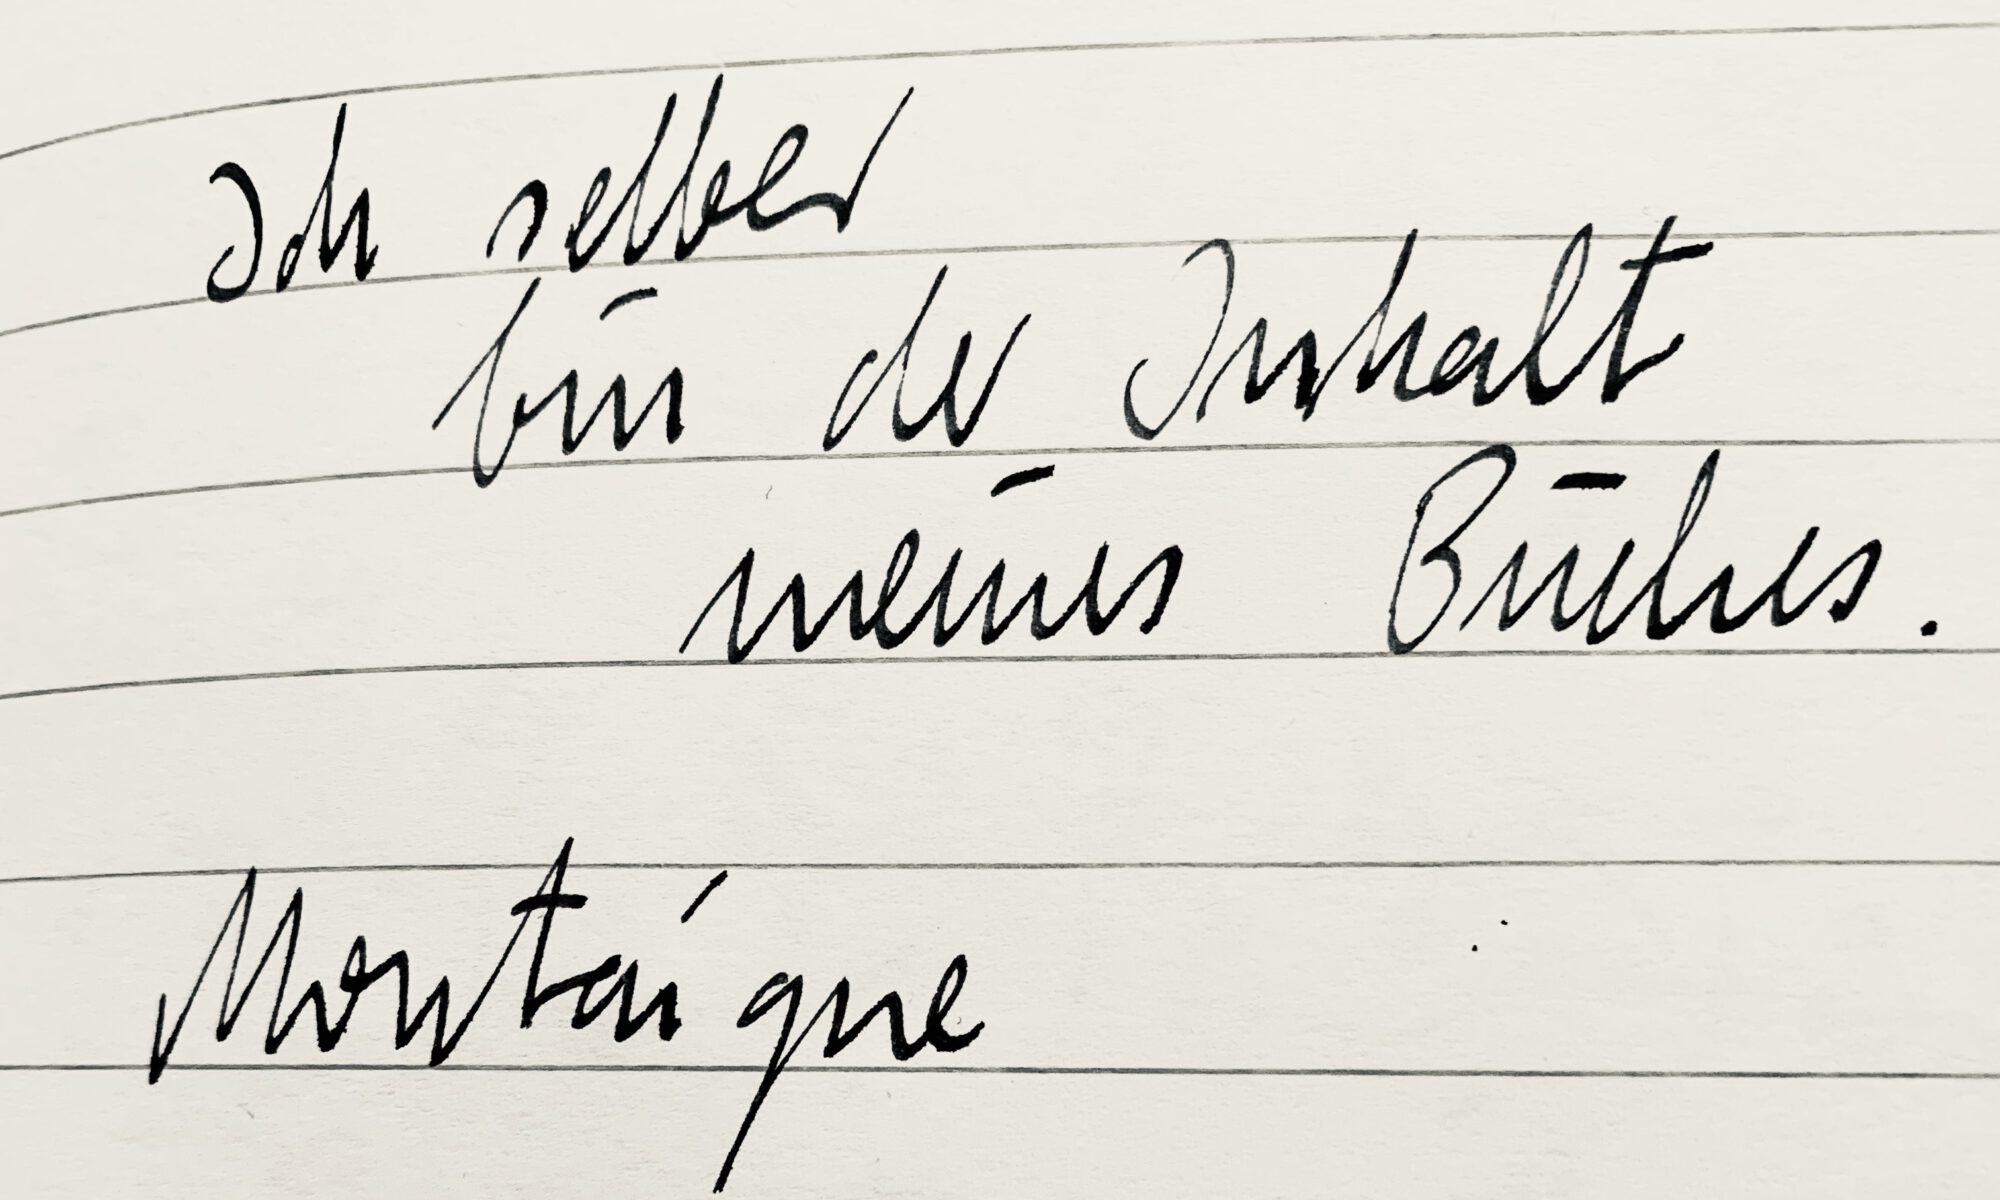 Ich selber
bin der Inhalt
meines Buches.
Montaigne